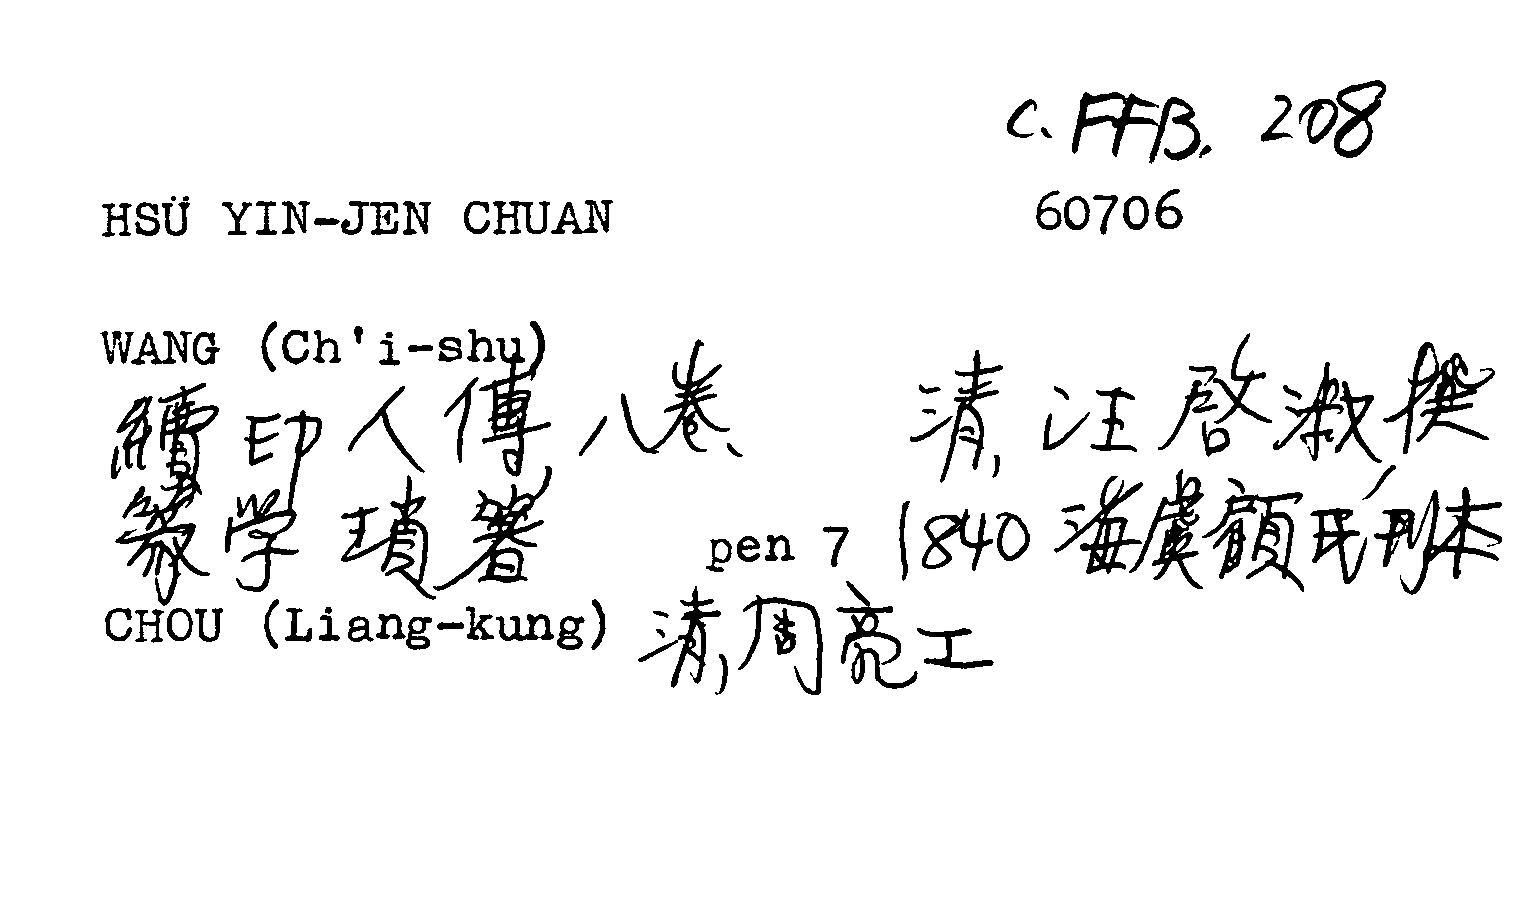 C. FFB. 208
HSÜ YIN-JEN CHUAN 60706
WANG (Ch'i-shu)
續印人傳八卷、 清, 汪啓淑撰
篆学瑣著 pen 7 1840 海虞顧氏刊本
CHOU (Liang-kung) 清, 周亮工